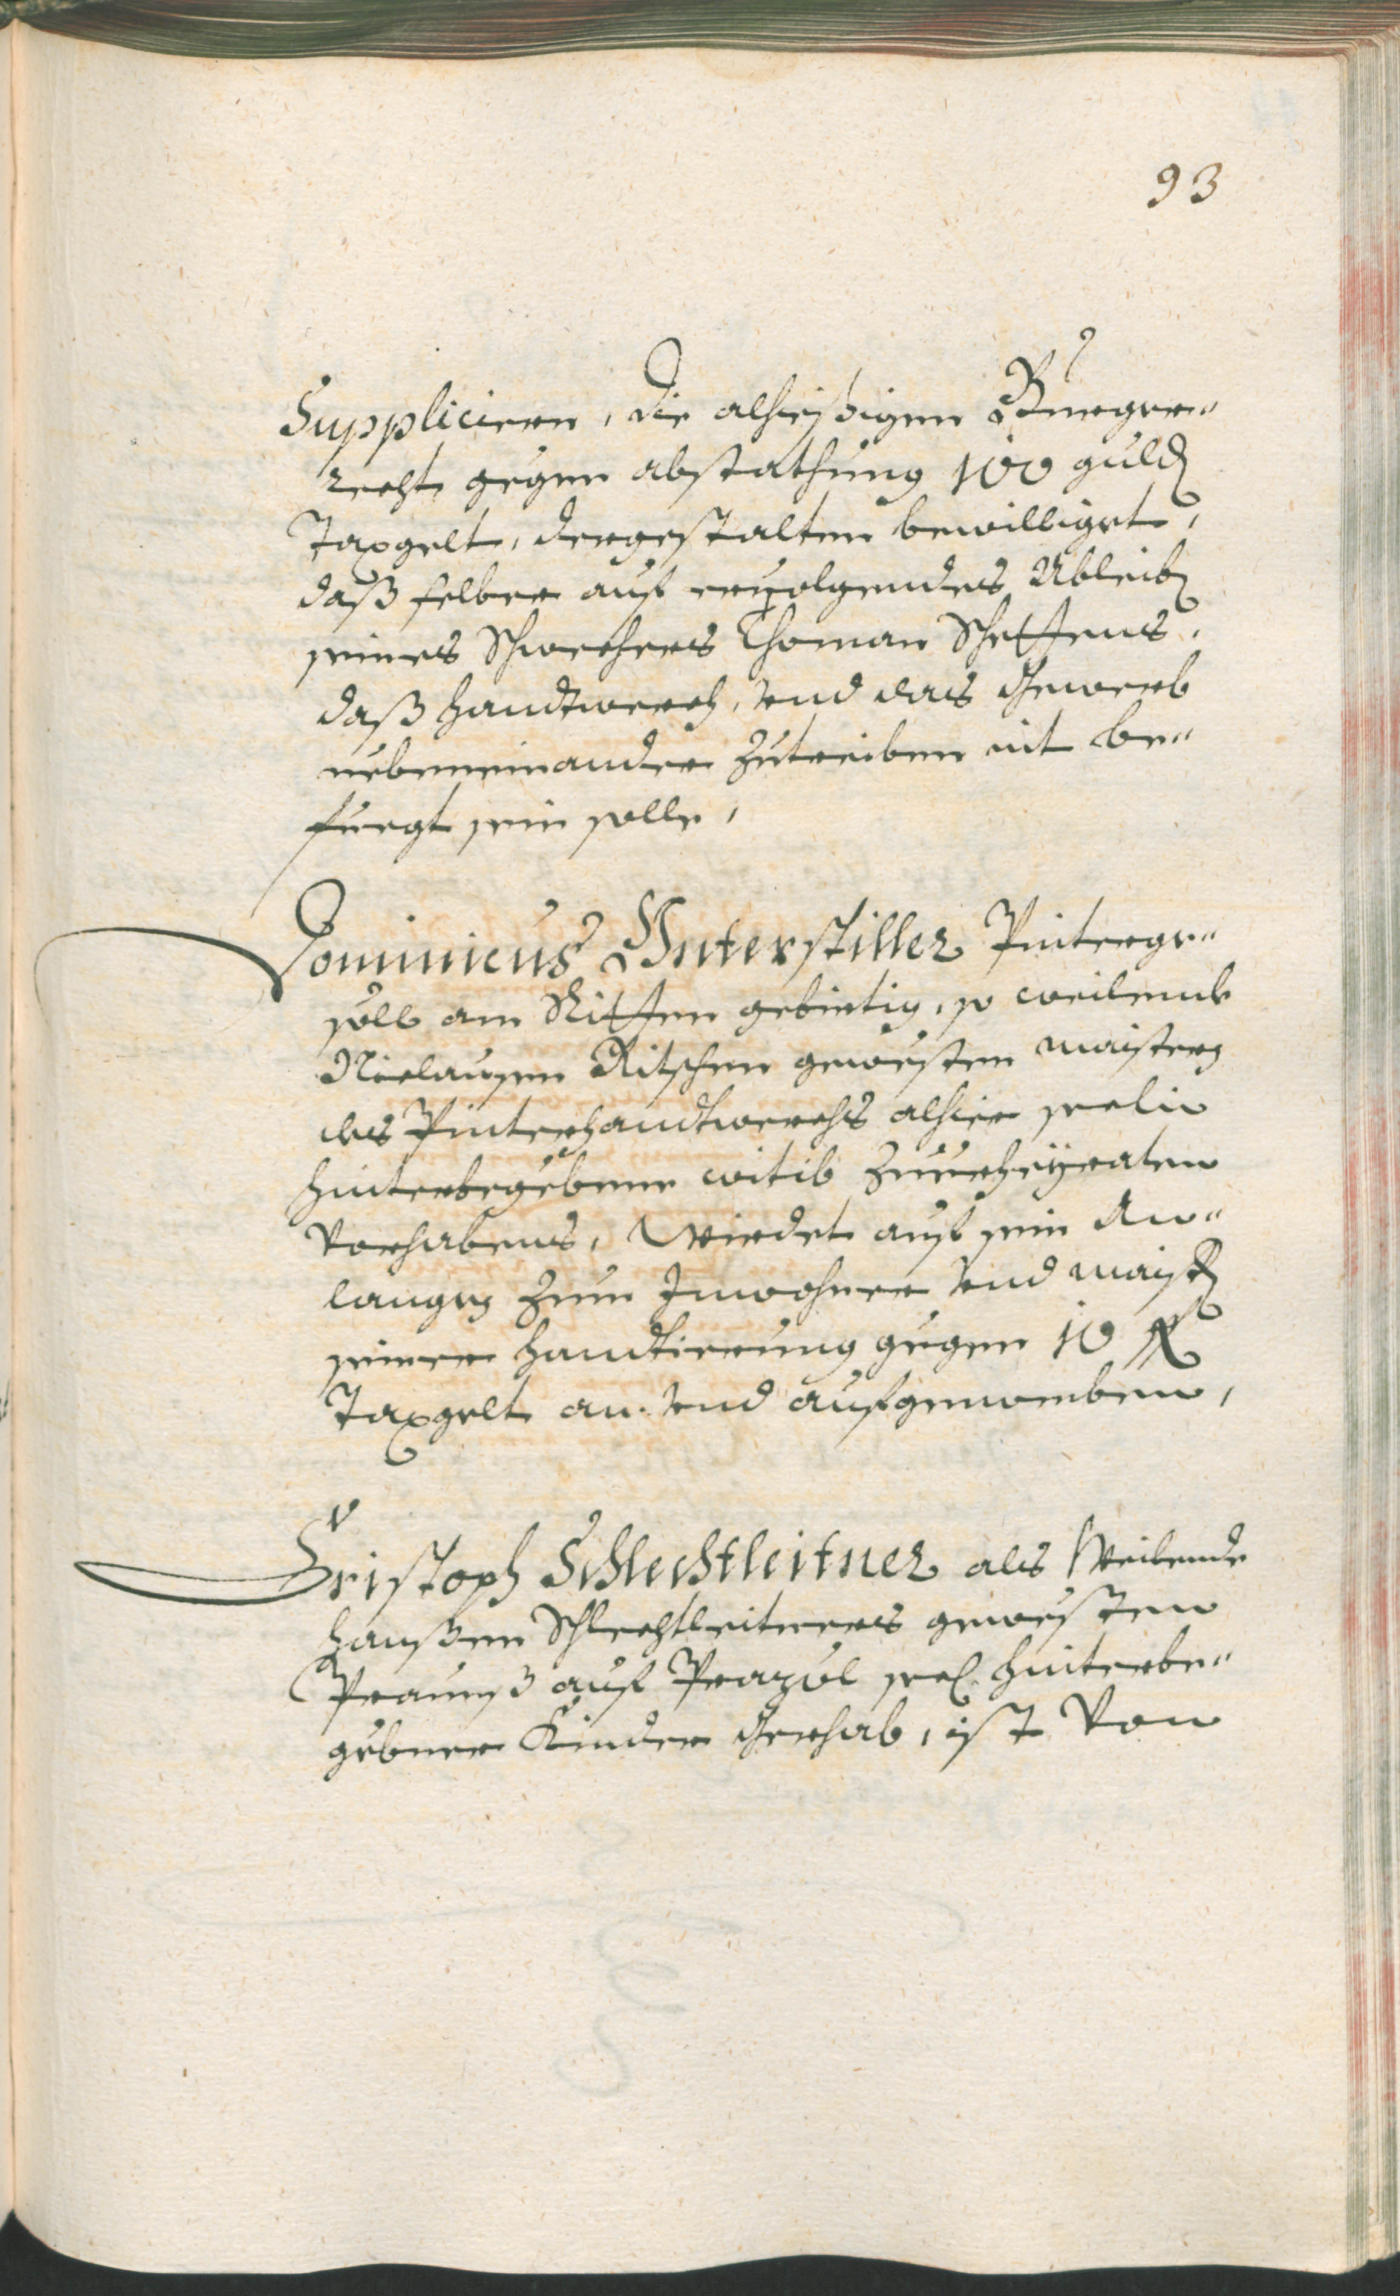 93
Suppliciern, die alhießigen Burger-
recht gegen abstathung 100 guld
Taxgelt, dergestalten bewilliget,
daß selber auf ervolgendes Ableib
seines Schwehers Thoman Scheffens,
daß Handtwerch, und das Gewerb
nebeneinander zutreiben nit be-
fuegt sein solle,
Dominicus Unterstiller Pinterge-
söll am Ritten gebirtig, so weilend
Niclausen Ritschen gewesten maisters
des Pinterhandtwerchs alhier seelig
hinterbegebene witib zuverheyraten
Vorhabens, Wirdet auf sein An-
langen zum Inwohner und maist
seiner Handtierung gegen 10 f
Taxgelt an- und aufgenomben,
Christoph Schlechtleitner als Weilende
Hanßen Schlechtleitners gewesten
auf sel. hinterbe-
gebner Kinder Gerhab, ist Von